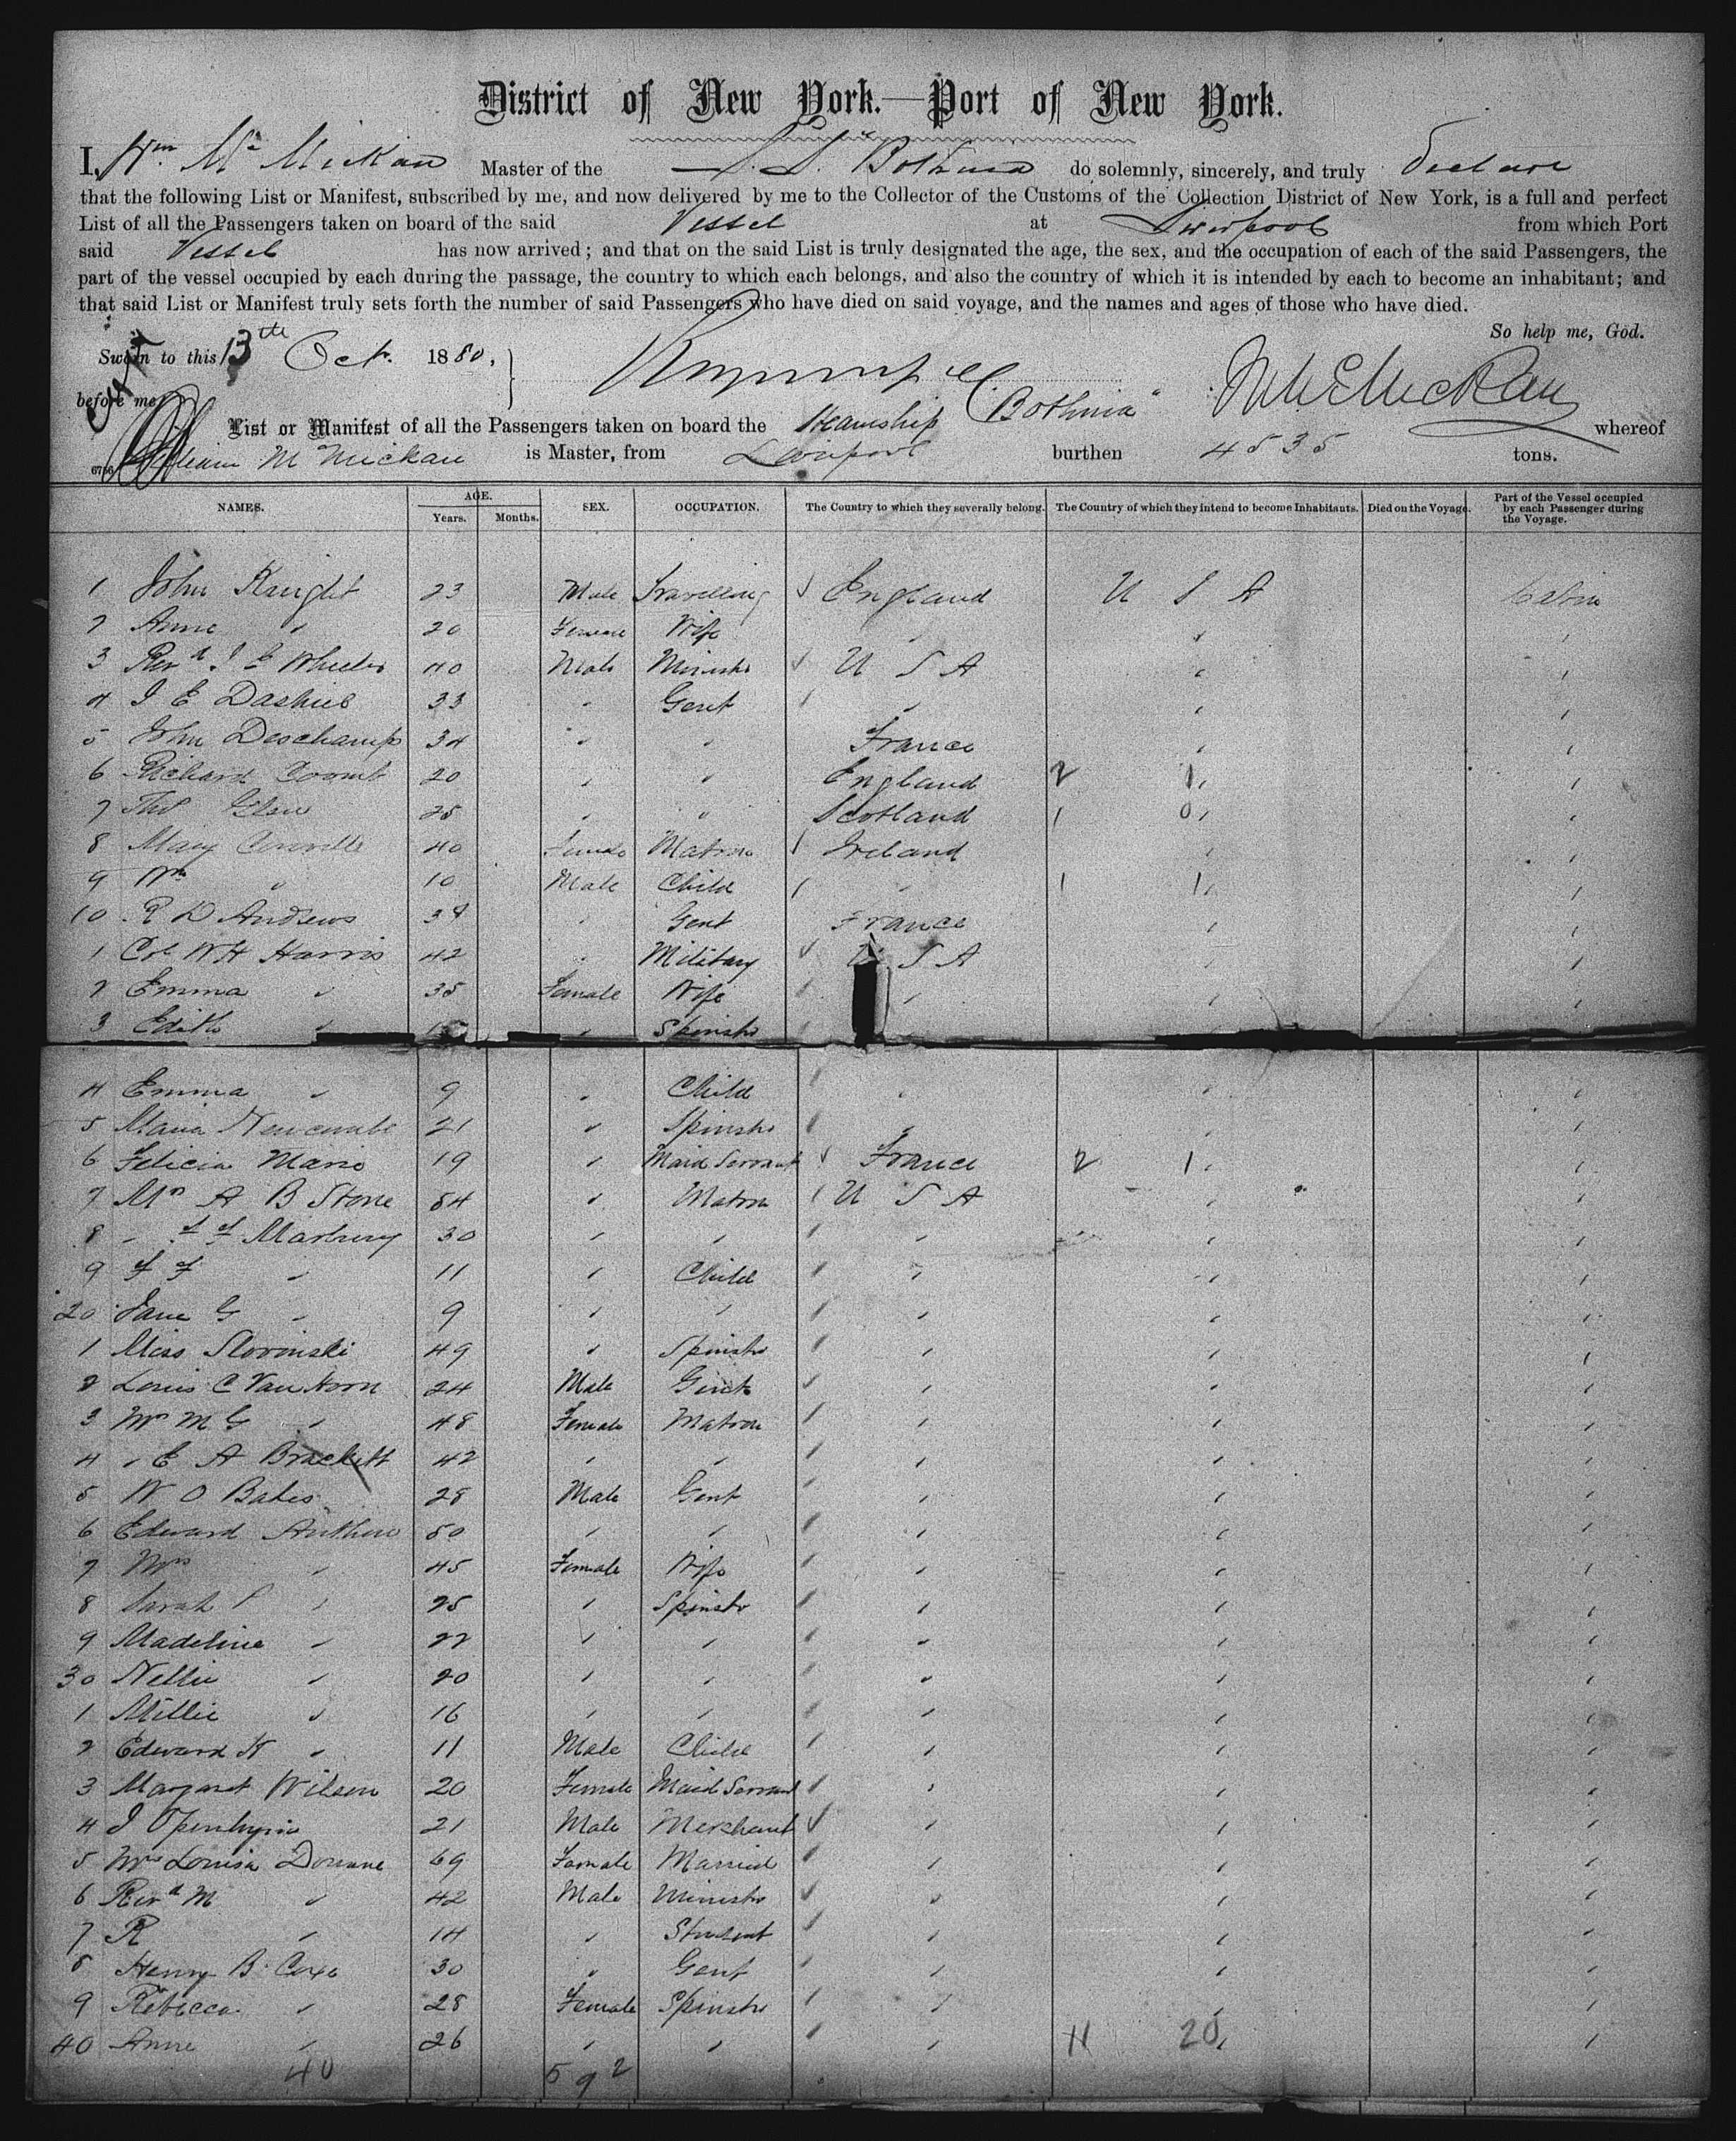 District of New York.—Port of New York.
I, Wm. Mc Mickan Master of the S.S. Bothnia do solemnly, sincerely, and truly declare
that the following List or Manifest, subscribed by me, and now delivered by me to the Collector of the Customs of the Collection District of New York, is a full and perfect
List of all the Passengers taken on board of the said Vessel at Liverpool from which Port
said Vessel has now arrived; and that on the said List is truly designated the age, the sex, and the occupation of each of the said Passengers, the
part of the vessel occupied by each during the passage, the country to which each belongs, and also the country of which it is intended by each to become an inhabitant; and
that said List or Manifest truly sets forth the number of said Passengers who have died on said voyage, and the names and ages of those who have died.
So help me, God.
Sworn to this 13th Oct. 1880,
before me
List or Manifest of all the Passengers taken on board the Steamship "Bothnia" whereof
William Mc Mickan is Master, from Liverpool burthen 4535 tons.
NAMES. AGE. Years. Months. SEX. OCCUPATION. The Country to which they severally belong. The Country of which they intend to become Inhabitants. Died on the Voyage. Part of the Vessel occupied by each Passenger during the Voyage.
1 John Knight 23 Male Travelling England U S A Cabin
2 Anne " 20 Female Wife " "
3 Revd J E Wheeler 40 Male Minister U S A " "
4 J E Dashiel 33 " Gent " " "
5 John Deschamps 34 " " France " "
6 Richard Coomb 20 " " England 2 1 " "
7 Thos 25 " " Scotland 1 0 " "
8 Mary 40 Female Matron Ireland " "
9 Wm " 10 Male Child " 1 1 " "
10 R D Andrews 38 " Gent France " "
1 Col W H Harris 42 " Military U S A " "
2 Emma " 35 Female Wife " " "
3 Edith " " Spinster
4 Emma " 9 " Child " " "
5 Maria Newcombe 21 " Spinster " " "
6 Felicia Mario 19 " Maid Servant France 2 1 " "
7 Mrs A B Stone 54 " Matron U S A " "
8 " F F Marbury 30 " " " " "
9 F F " 11 " Child " " "
20 Jane G " 9 " " " " "
1 Miss Slovinski 49 " Spinster " " "
2 Louis C Van Horn 24 Male Gent " " "
3 Mrs M G " 48 Female Matron " " "
4 " E A Brackett 42 " " " " "
5 W O Bates 28 Male Gent " " "
6 Edward Anthony 50 " " " " "
7 Mrs " 45 Female Wife " " "
8 Sarah P " 25 " Spinster " " "
9 Madeline " 22 " " " " "
30 Nellie " 20 " " " " "
1 Millie " 16 " " " " "
2 Edward H " 11 Male Child " " "
3 Margaret Wilson 20 Female Maid Servant " " "
4 J Openhym 21 Male Merchant " " "
5 Mrs Louisa Douane 69 Female Married " " "
6 Revd M " 42 Male Minister " " "
7 R " 14 " Student " " "
8 Henry B Coxe 30 " Gent " " "
9 Rebecca " 28 Female Spinster " " "
40 Anne " 26 " " " 11 20 " "
40 592